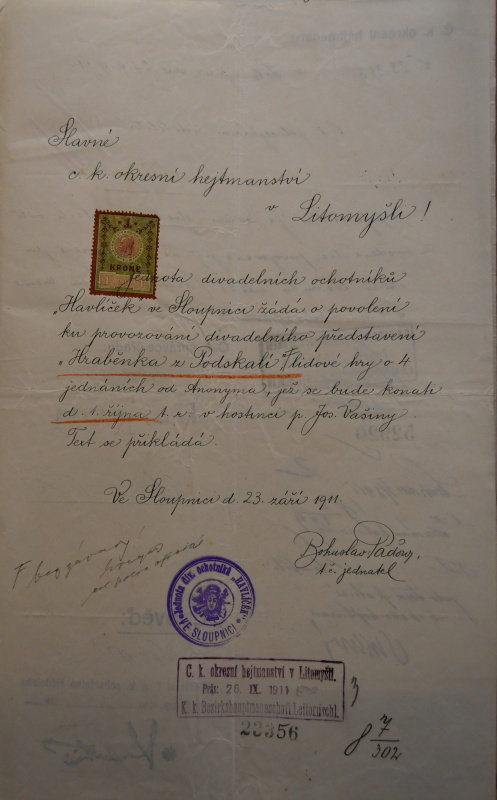 Slavné
c. k. okresní hejtmanství
v Litomyšli!
1
KRONE
Jednota divadelních ochotníků
„Havlíček ve Sloupnici žádá o povolení
ku provozování divadelního představení
„Hraběnka z Podskalí" lidové hry o 4
jednáních od Anonyma, jež se bude konati
d. 1. října t. r. v hostinci p. Jos. Vašiny.
Text se přikládá.
Ve Sloupnici d. 23. září 1911.
Bohuslav
t. č. jednatel
Jednota div. ochotníků „HAVLÍČEK"
VE SLOUPNICI
C. k. okresní hejtmanství v Litomyšli.
Präs. 26. IX. 1911
K. k. Bezirkshauptmannschaft Leitomischl.
23356
3
8 7/302